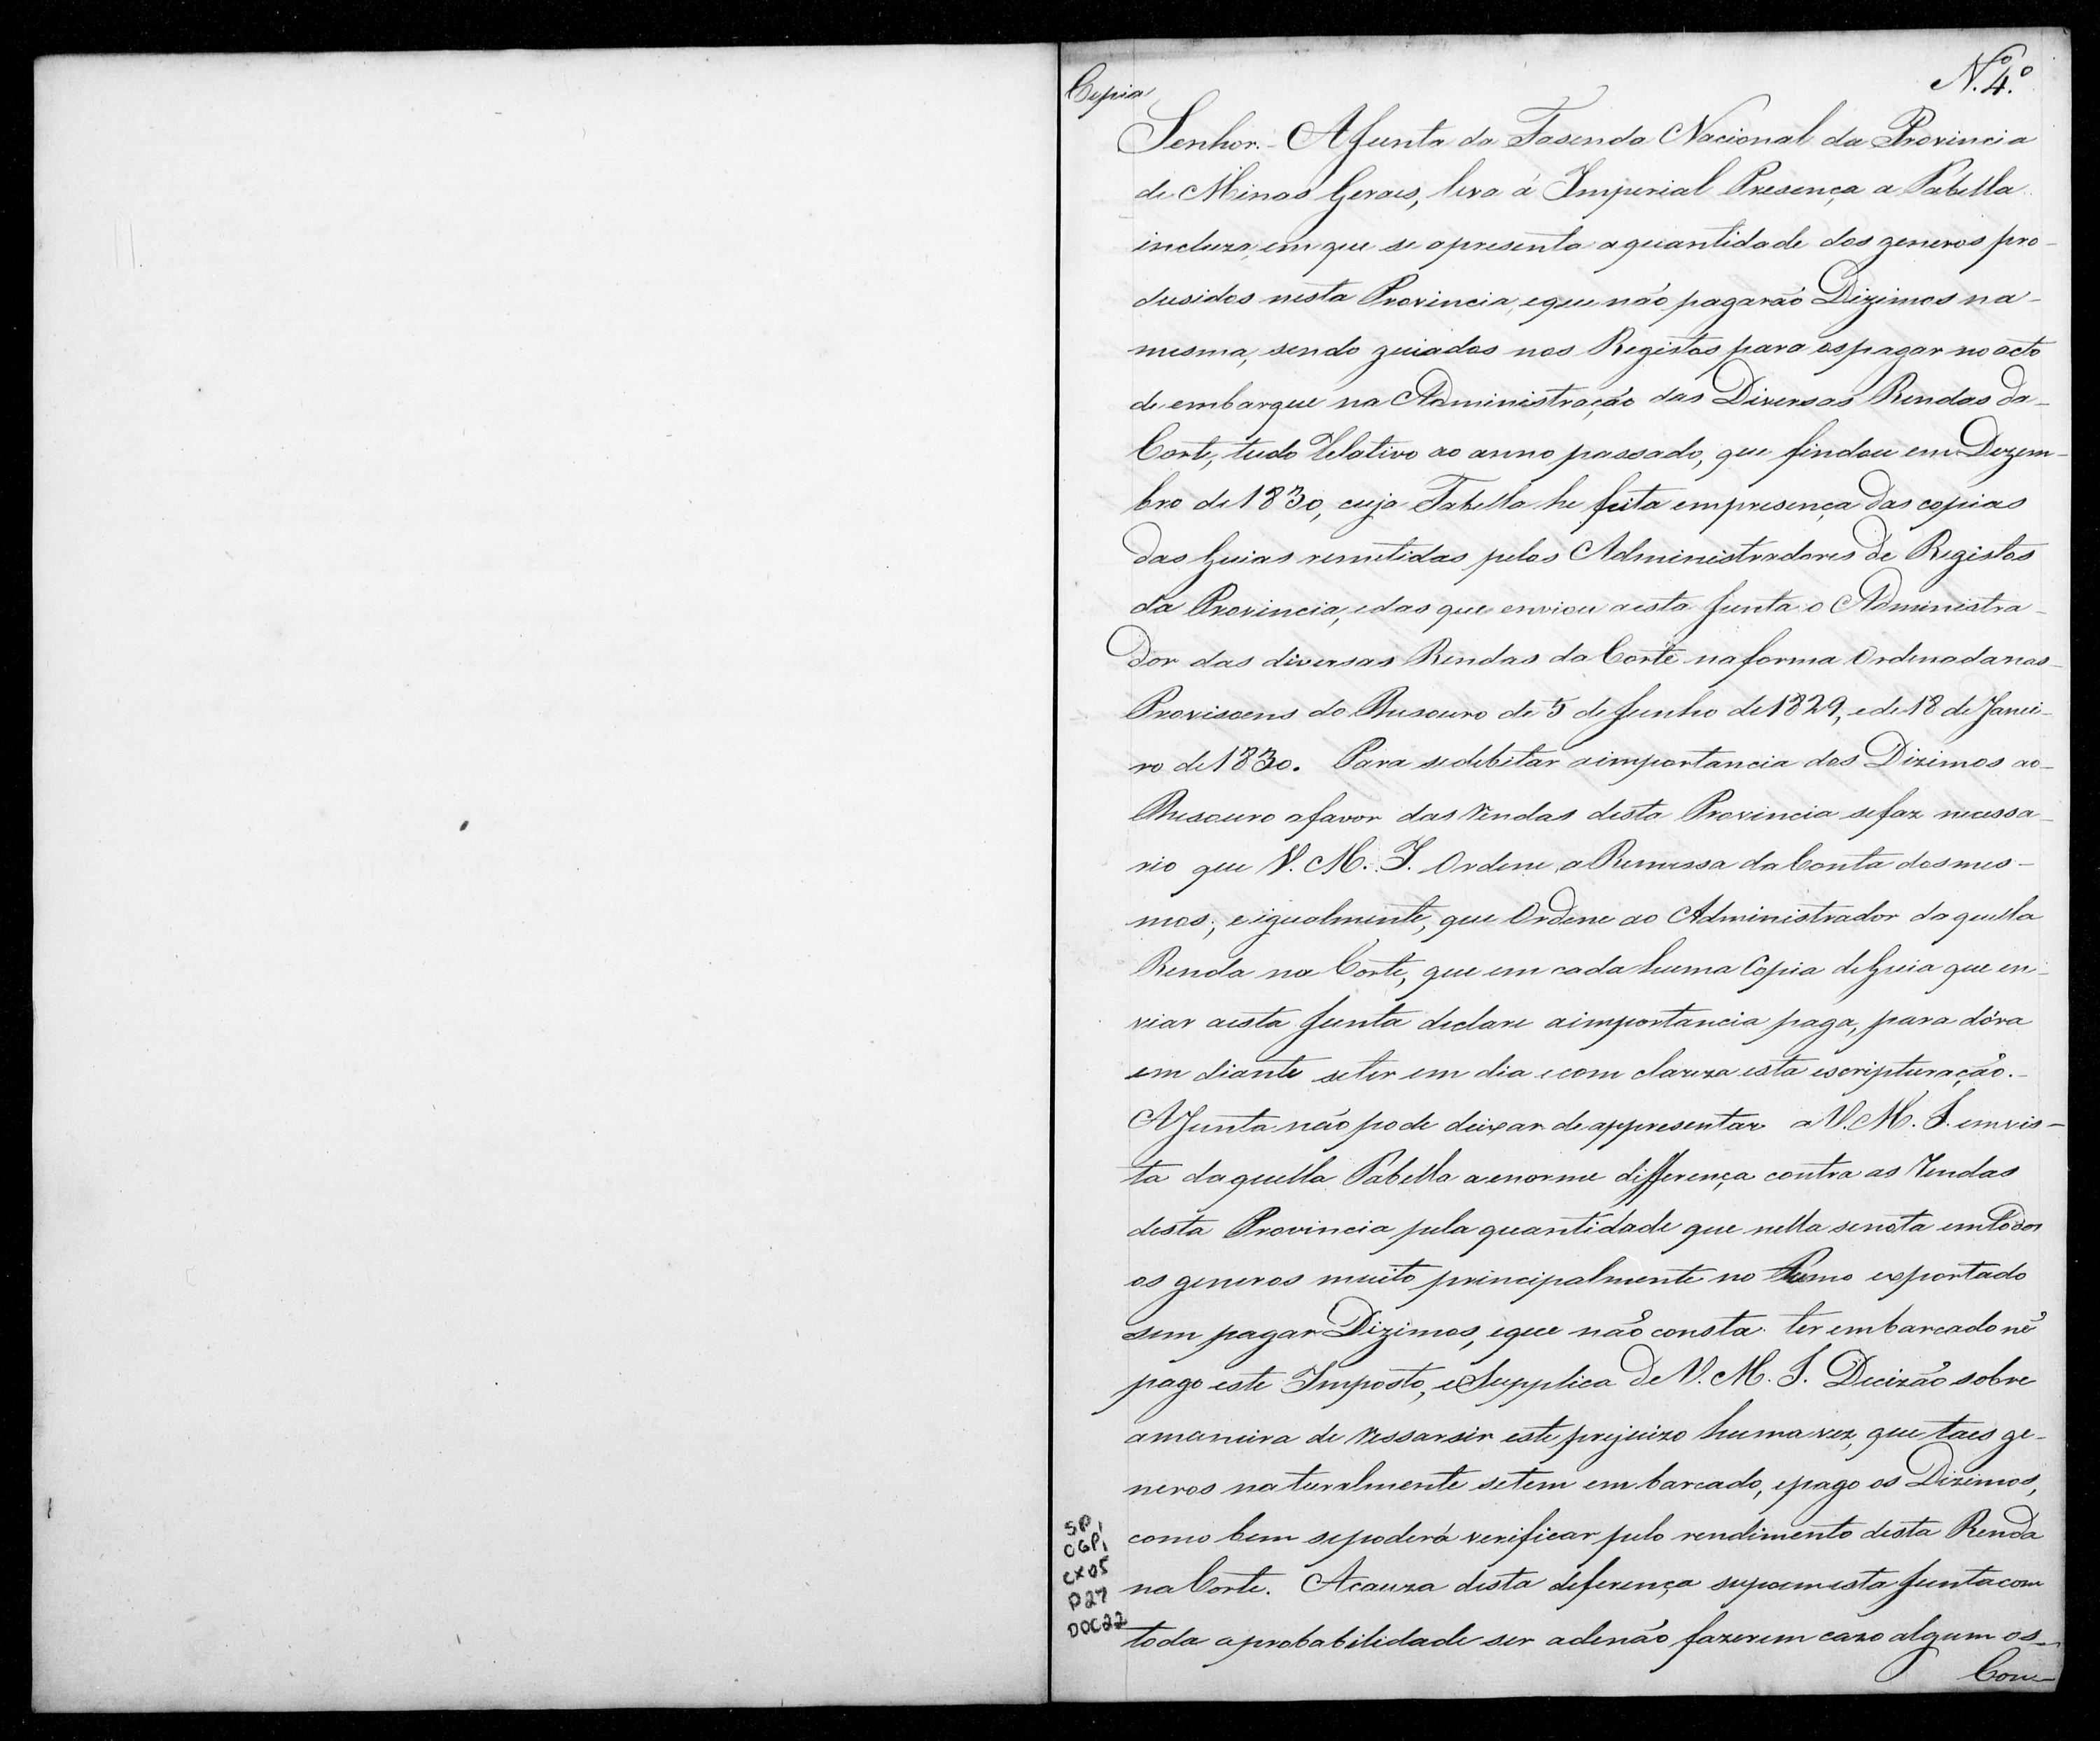 Copia
N.º 4.º
Senhor. - A Junta da Fasenda Nacional da Provincia
de Minas Geraes, leva á Imperial Presença a Tabella
incluza, em que se apresenta a quantidade dos generos pro-
dusidos nesta Provincia, e que não pagarão Dizimos na-
mesma, sendo guiados nos Registos para os pagar no acto
de embarque na Administração das Diversas Rendas da-
Corte, tudo Relativo ao anno passado, que findou em Dezem-
bro de 1830, cuja Tabella he feita em presença das copias
das Guias remetidas pelos Administradores de Registos
da Provincia, e das que enviou a esta Junta o Administra-
dor das diversas Rendas da Corte na forma Ordenada nas-
Provisoens do Thesouro de 5 de Junho de 1829, e de 18 de Janei-
ro de 1830. Para se debitar a importancia dos Dizimos ao-
Thesouro a favor das Rendas desta Provincia se faz necessa-
rio que V. M. I. Ordene a Remessa da Conta dos mes-
mos; e igualmente, que Ordene ao Administrador daquella
Renda na Corte, que em cada huma Copia de Guia que en-
viar a esta Junta declare a importancia paga, para dóra
em diante se ter em dia e com clareza esta escripturação.-
A Junta não pode deixar de appresentar a V. M. I. em vis-
ta daquella Tabella a enorme differença contra as Rendas
desta Provincia pela quantidade que nella se nota em todos
os generos muito principalmente no Fumo exportado
sem pagar Dizimos, e que não consta ter embarcado nẽ
pago este Imposto, e Supplica de V. M. I. Decizão sobre
a maneira de ressarsir este prejuizo huma vez, que taes ge-
neros naturalmente se tem embarcado, e pago os Dizimos,
como bem se poderá verificar pelo rendimento desta Renda
na Corte. A cauza desta deferença supoem esta Junta com
toda a probabilidade ser a de não fazerem cazo algum os-
Com-
SP,
OGP,
CX05
P27
DOC22